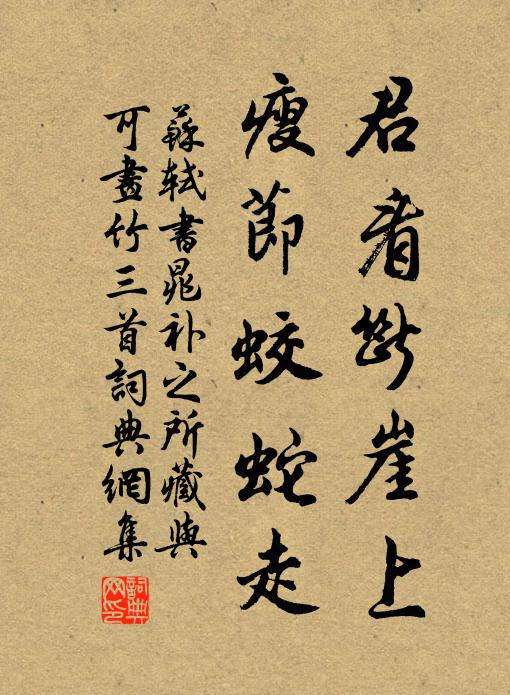 君看斷崖上
瘦節蛟蛇走
蘇軾書晁补之所藏與
可畫竹三首詞典網集
詞典
网印